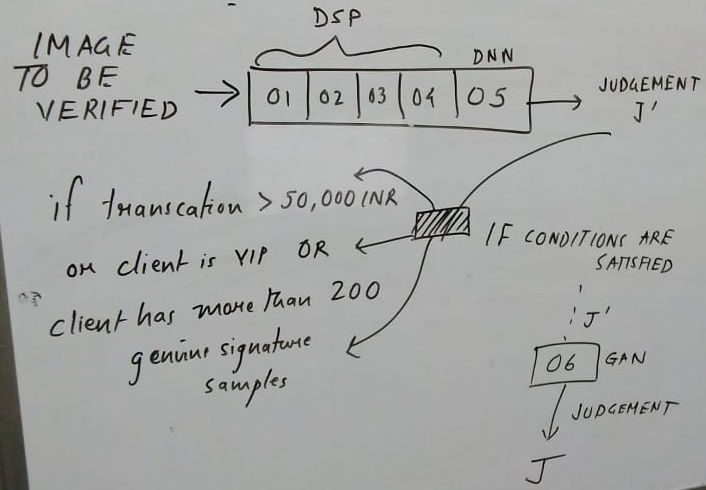 DSP
IMAGE
TO BE
VERIFIED
01 02 03 04 05
DNN
JUDGEMENT
J'
if transcation > 50,000 INR
or client is VIP OR
client has more than 200
genuine signature
samples
IF CONDITIONS ARE
SATISFIED
J'
06 GAN
JUDGEMENT
J